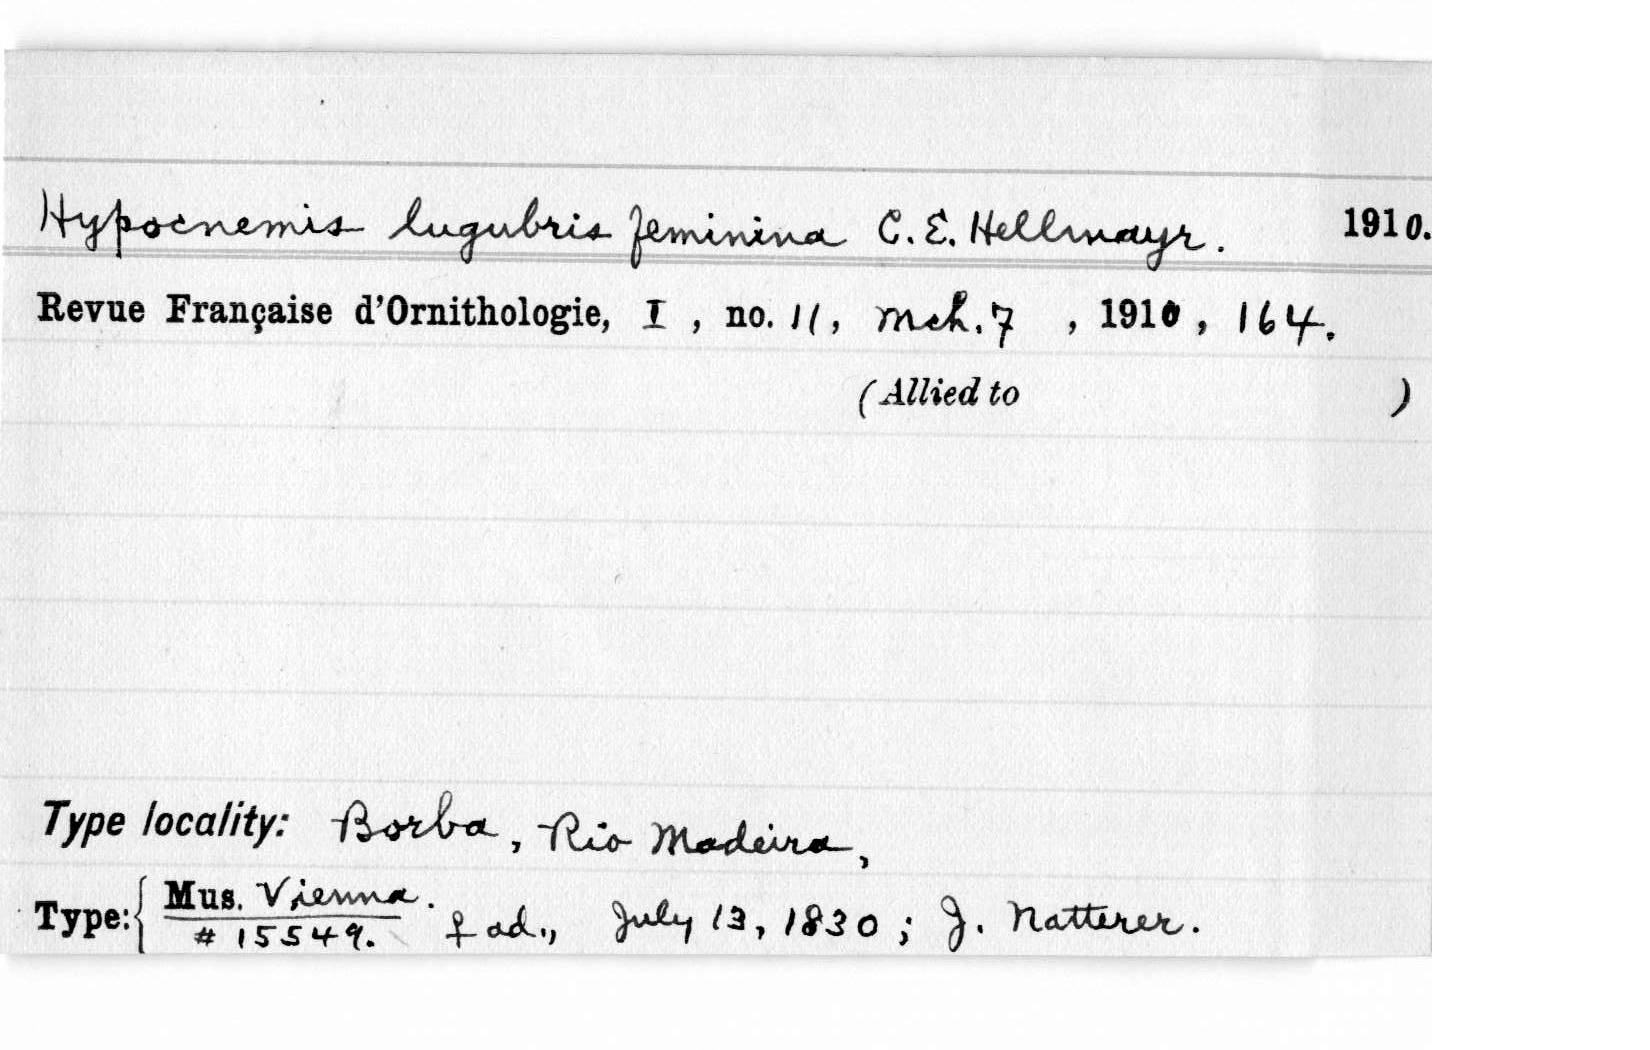 Hypocnemis lugubris feminina C. E. Hellmayr. 1910.
Revue Française d'Ornithologie, I, no. 11, Mch. 7, 1910, 164.
(Allied to )
Type locality: Borba, Rio Madeira,
Type: { Mus. Vienna.
# 15549. ♀ ad., July 13, 1830; J. Natterer.